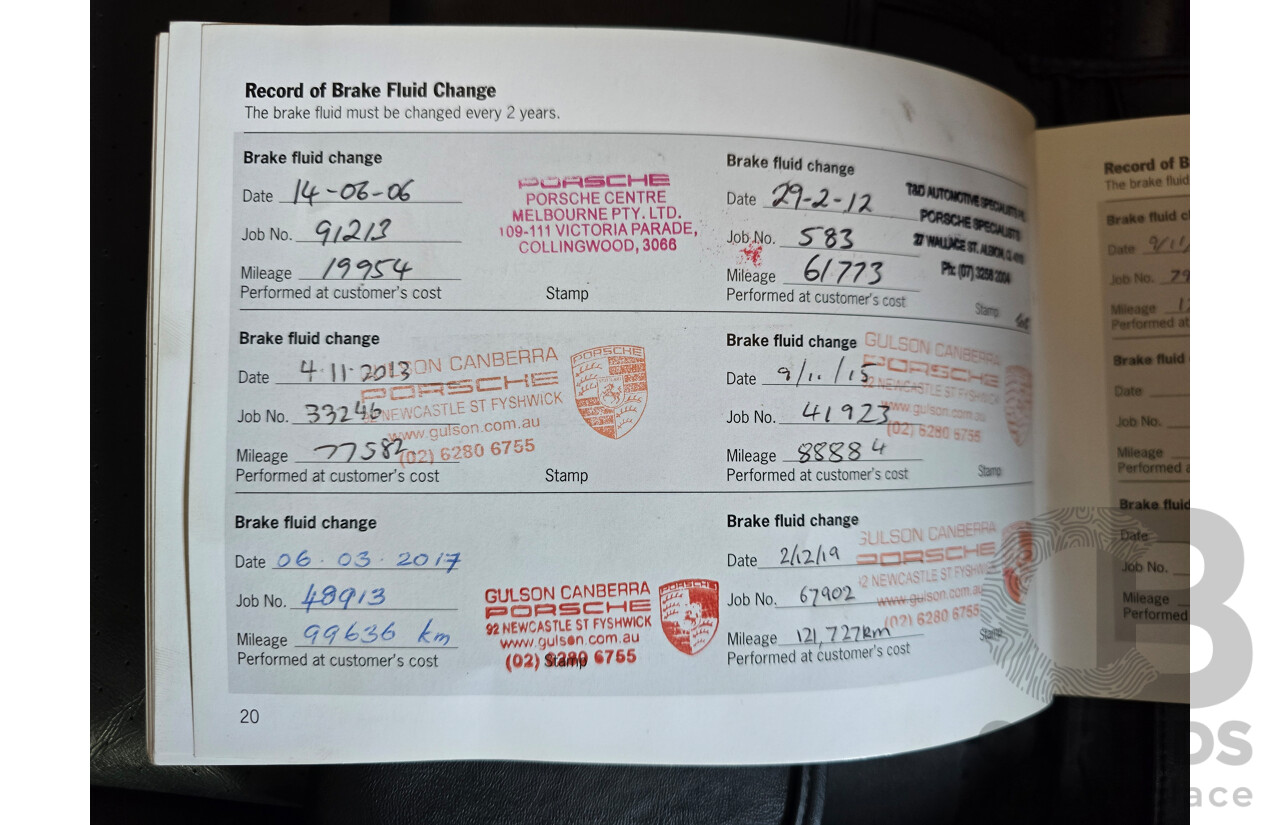 Record of Brake Fluid Change
The brake fluid must be changed every 2 years.
Brake fluid change
Date 14-06-06
Job No. 91213
Mileage 19954
Performed at customer's cost
Stamp
PORSCHE
PORSCHE CENTRE
MELBOURNE PTY. LTD.
109-111 VICTORIA PARADE,
COLLINGWOOD, 3066
Brake fluid change
Date 29-2-12
Job No. 583
Mileage 61773
Performed at customer's cost
Stamp
T&D AUTOMOTIVE SPECIALISTS
PORSCHE SPECIALISTS
27 WALLACE ST. ALBION, Q 4010
Ph: (07) 3256 2004
Brake fluid change
Date 4.11.2013
Job No. 33246
Mileage 77582
Performed at customer's cost
Stamp
ON CANBERRA
PORSCHE
NEWCASTLE ST FYSHWICK
www.gulson.com.au
(02) 6280 6755
PORSCHE
Brake fluid change
Date 9/11/15
Job No. 41923
Mileage 88884
Performed at customer's cost
Stamp
GULSON CANBERRA
PORSCHE
2 NEWCASTLE ST FYSHWICK
www.gulson.com.au
(02) 6280 6755
Brake fluid change
Date 06.03.2017
Job No. 48913
Mileage 99636 km
Performed at customer's cost
Stamp
GULSON CANBERRA
PORSCHE
92 NEWCASTLE ST FYSHWICK
www.gulson.com.au
(02) 6280 6755
PORSCHE
Brake fluid change
Date 2/12/19
Job No. 67902
Mileage 121,727km
Performed at customer's cost
Stamp
GULSON CANBERRA
PORSCHE
92 NEWCASTLE ST FYSHW
www.gulson.com.au
(02) 6280 6755
20
Record of B
The brake fluid
Brake fluid c
Date 9/11/
Job No. 79
Mileage 1
Performed at
Brake fluid
Date
Job No.
Mileage
Performed a
Brake fluid
Date
Job No.
Mileage
Performed